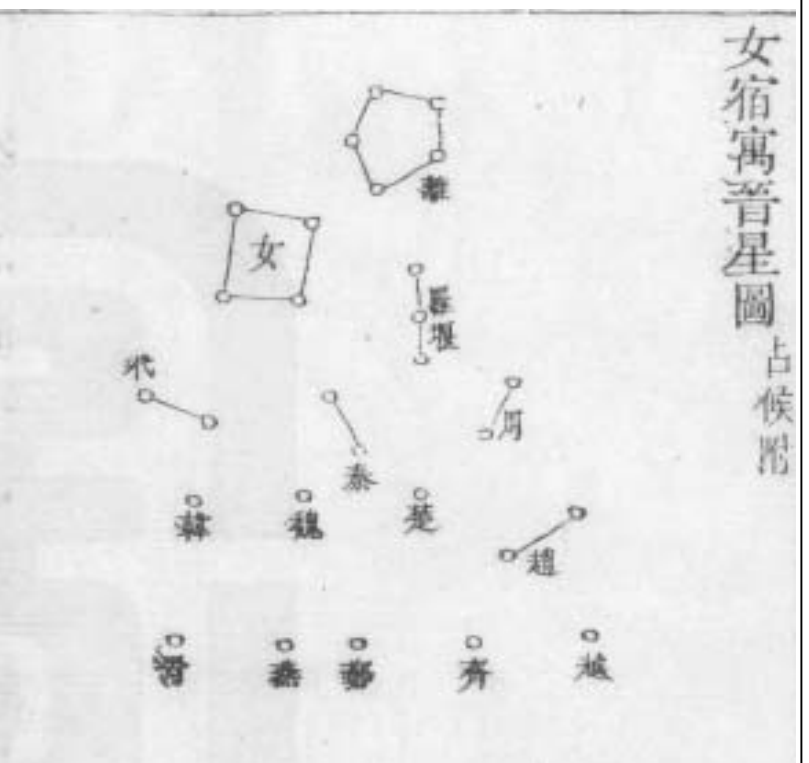 女宿寓晉星圖
占候附
離
女
羅堰
代
周
秦
韓
魏
楚
趙
燕
鄭
齊
越